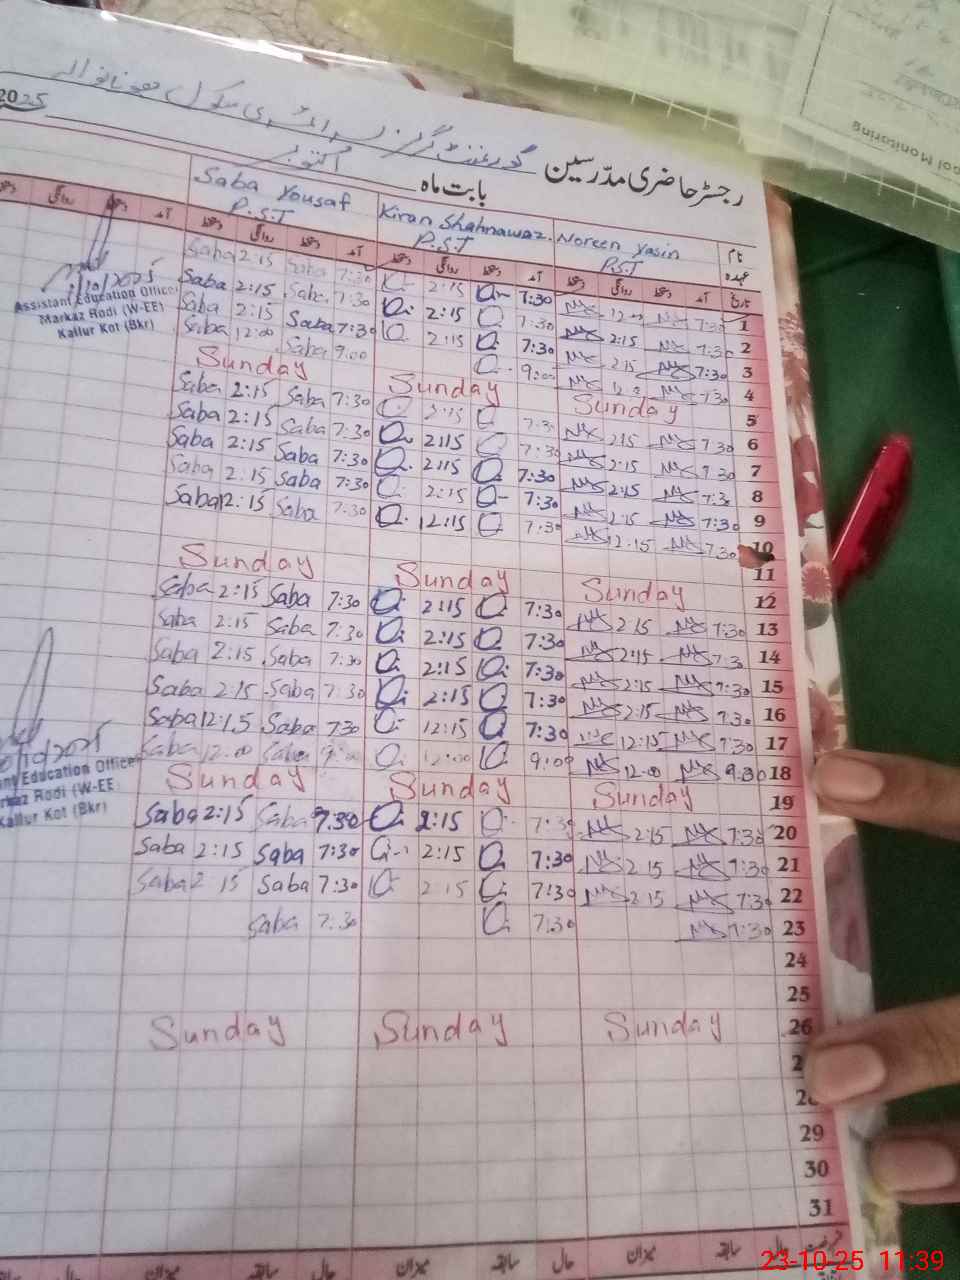 2025
گورنمنٹ گرلز پرائمری سکول
رجسٹر حاضری مدرسین
بابت ماہ اکتوبر
Saba Yousaf Kiran Shahnawaz. Noreen Yasin نام
P.S.T P.S.T P.S.T عہدہ
دستخط روانگی دستخط آمد دستخط روانگی دستخط آمد دستخط روانگی دستخط آمد دستخط روانگی دستخط آمد تاریخ
Saba 2:15 Saba 7:30 2:15 7:30 12:00 7:30 1
Saba 2:15 Saba 7:30 2:15 7:30 2:15 7:30 2
Saba 2:15 Saba 7:30 2:15 7:30 2:15 7:30 3
Saba 12:00 Saba 9:00 9:00 7:30 4
Sunday Sunday Sunday 5
Saba 2:15 Saba 7:30 2:15 7:30 2:15 7:30 6
Saba 2:15 Saba 7:30 2:15 7:30 2:15 7:30 7
Saba 2:15 Saba 7:30 2:15 7:30 2:15 7:30 8
Saba 2:15 Saba 7:30 2:15 7:30 2:15 7:30 9
Saba 12:15 Saba 7:30 12:15 7:30 12:15 7:30 10
11
Sunday Sunday Sunday 12
Saba 2:15 Saba 7:30 2:15 7:30 2:15 7:30 13
Saba 2:15 Saba 7:30 2:15 7:30 2:15 7:30 14
Saba 2:15 Saba 7:30 2:15 7:30 2:15 7:30 15
Saba 2:15 Saba 7:30 2:15 7:30 2:15 7:30 16
Saba 12:15 Saba 7:30 12:15 7:30 12:15 7:30 17
Saba 12:00 Saba 9:00 12:00 9:00 12:00 9:30 18
Sunday Sunday Sunday 19
Saba 2:15 Saba 7:30 2:15 7:30 2:15 7:30 20
Saba 2:15 Saba 7:30 2:15 7:30 2:15 7:30 21
Saba 2 15 Saba 7:30 2:15 7:30 2:15 7:30 22
Saba 7:30 7:30 7:30 23
24
25
Sunday Sunday Sunday 26
2
28
29
30
31
میزان سابقہ حال میزان سابقہ حال میزان سابقہ حال
/10/2025
Assistant Education Officer
Markaz Rodi (W-EE)
Kallur Kot (Bkr)
/10/2025
nt Education Officer
rkaz Rodi (W-EE)
Kallur Kot (Bkr)
ool Monitoring
23-10-25 11:39